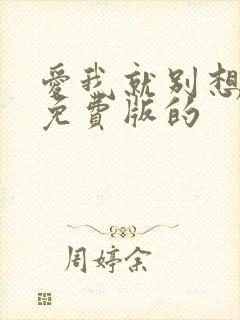 愛我就別想
免費版的
周婷余